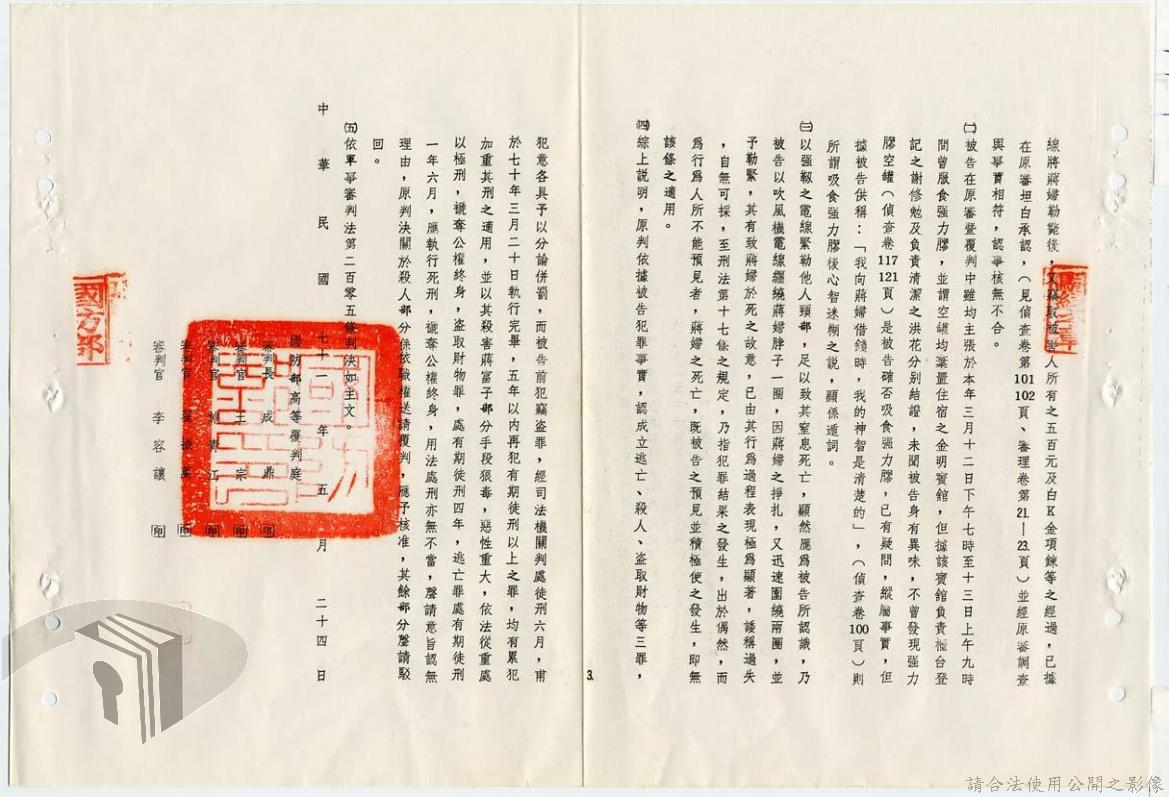 線將蔣婦勒斃後，又竊取被害人所有之五百元及白K金項鍊等之經過，已據
在原審坦白承認，（見偵查卷第101 102頁、審理卷第21—23頁）並經原審調查
與事實相符，認事核無不合。
㈡被告在原審暨覆判中雖均主張於本年三月十二日下午七時至十三日上午九時
間曾服食強力膠，並謂空罐均棄置住宿之金明賓館，但據該賓館負責櫃台登
記之謝修勉及負責清潔之洪花分别結證，未聞被告身有異味，不曾發現強力
膠空罐（偵查卷117 121頁）是被告確否吸食強力膠，已有疑問，縱屬事實，但
據被告供稱：「我向蔣婦借錢時，我的神智是清楚的」，（偵查卷100頁）則
所謂吸食強力膠後心智迷糊之說，顯係遁詞。
㈢以強靱之電線緊勒他人頸部，足以致其窒息死亡，顯然應爲被告所認識，乃
被告以吹風機電線纏繞蔣婦脖子一圈，因蔣婦之掙扎，又迅速圍繞兩圈，並
予勒緊，其有致蔣婦於死之故意，已由其行爲過程表現極爲顯著，諉稱過失
，自無可採，至刑法第十七條之規定，乃指犯罪結果之發生，出於偶然，而
爲行爲人所不能預見者，蔣婦之死亡，既被告之預見並積極使之發生，即無
該條之適用。
㈣綜上說明，原判依據被告犯罪事實，認成立逃亡、殺人、盜取財物等三罪，
3.
犯意各具予以分論併罰，而被告前犯竊盜罪，經司法機關判處徒刑六月，甫
於七十年三月二十日執行完畢，五年以内再犯有期徒刑以上之罪，均有累犯
加重其刑之適用，並以其殺害蔣富子部分手段狠毒，惡性重大，依法從重處
以極刑，褫奪公權終身，盜取財物罪，處有期徒刑四年，逃亡罪處有期徒刑
一年六月，應執行死刑，褫奪公權終身，用法處刑亦無不當，聲請意旨認無
理由，原判決關於殺人部分係依職權送請覆判，應予核准，其餘部分聲請駁
回。
㈤依軍事審判法第二百零五條判決如主文。
中華民國七十一年五月二十四日
國防部高等覆判庭
審判長 成 鼎 印
審判官 王 宗 印
審判官 青 江 印
審判官 印
審判官 李容讓 印
國方部
請合法使用公開之影像